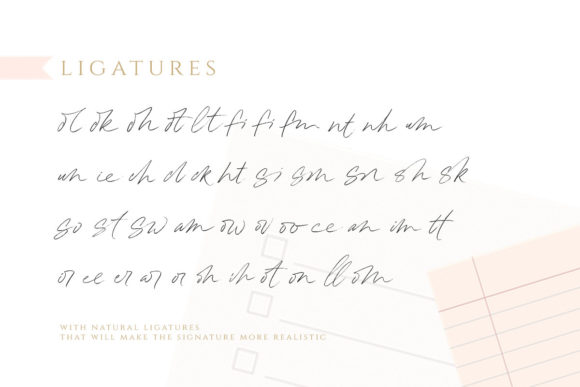 LIGATURES
ol ok oh ot lt fi fi fm nt nh um
un ie ch cl ck ht si sm sn sh sk
so st sw am ow oi oo ce an im tt
or ee er ar or ih ot on ll om
WITH NATURAL LIGATURES
THAT WILL MAKE THE SIGNATURE MORE REALISTIC